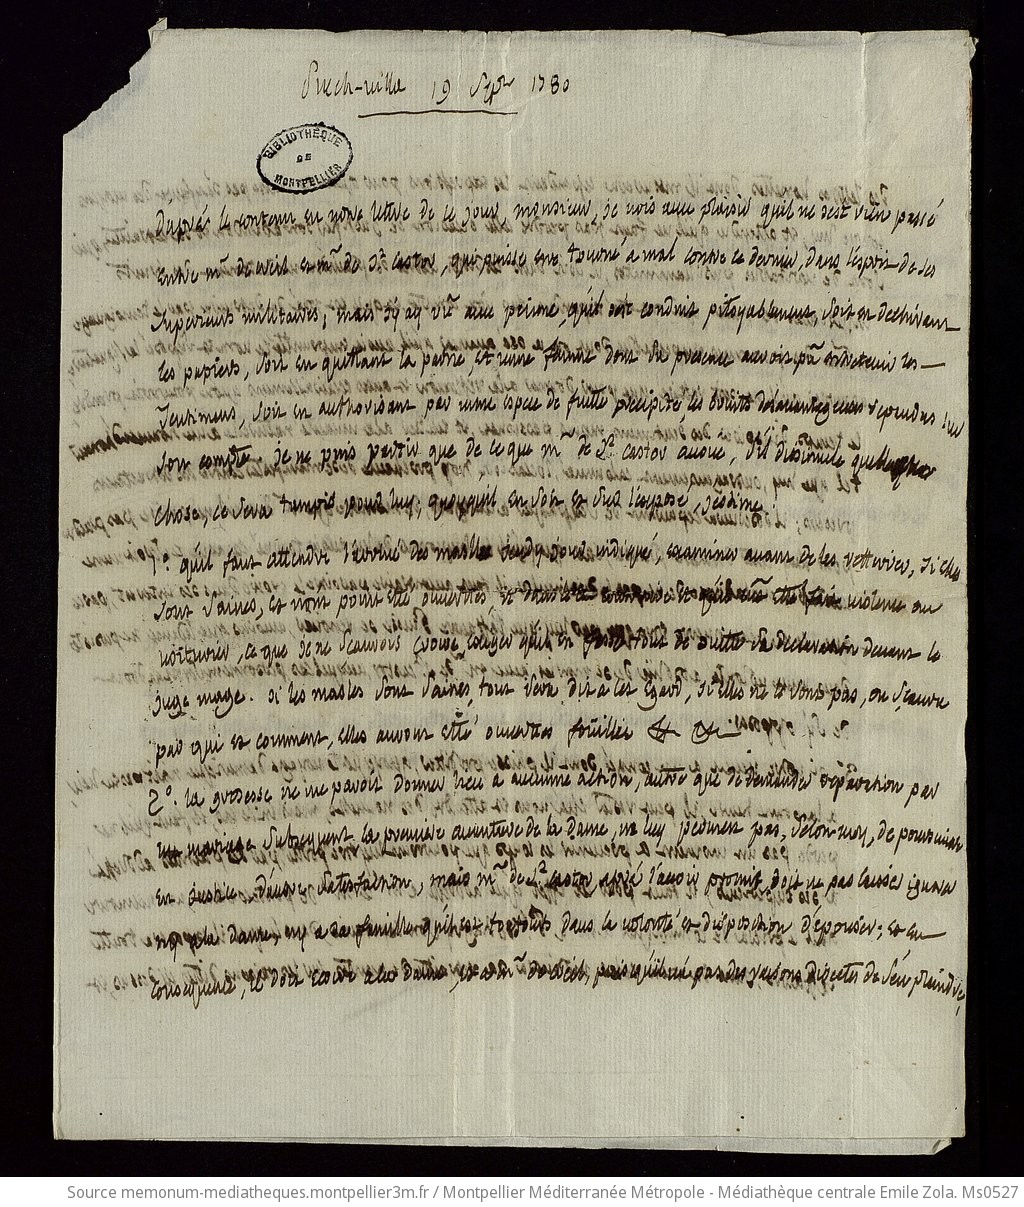 Puech-ville 19 Sepbre 1780
BIBLIOTHÈQUE
DE
MONTPELLIER
Daprés le contenu en votre lettre de ce jour, monsieur, je vois avec plaisir quil ne sest rien passé
entre mr de weil et mr de St castor, qui puisse etre tourné a mal contre ce dernier, dans lesprit de ses
superieurs militaires; mais j'y ay vu avec peine, quil sest conduit pitoyablement, soit en dechirant
les papiers, soit en quittant la patrie, et une femme dont la presence auroit pû entretenir les
sentimens, soit en authorisant par une espece de fuitte precipité les bruits desavantageux repandus sur
son compte. je ne puis partir que de ce que mr de St castor avoue, s'il dissimule quelque
chose, ce sera tampis pour luy, quoyquil en soit et sur l'exposé, j'estime.
1o. quil faut attendre l'arrivé des malles jeudy jour indiqué, examiner avant de les rettirer, si elles
sont saines, et nont point eté ouvertes, et dans le cas quil eut eté fait violence au
voiturier, ce que je ne scaurois croire, exiger quil en fasse tout de suitte sa declaration devant le
juge mage. si les malles sont saines, tout sera dit a cet egard, si elles ne le sont pas, on scaura
par qui et comment, elles auront eté ouvertes fouillés &c &c
2o. la grossesse ne pouvoit donner lieu a aucune action, autre que de demander réparation par
un mariage subsequent, la premiere avanture de la dame, ne luy permet pas, selon moy, de poursuivre
en justice d'autre satisfaction, mais mr de St castor ayant l'avoir promis, doit ne pas laisser ignorer
ny a la dame, ny a sa famille quil est toujours dans la volonté et disposition d'epouser; et en
consequence, il doit ecrire a la dame, et a mr de weil, puisquil n'a pas des raisons directes de s'en plaindre,
Source memonum-mediatheques.montpellier3m.fr / Montpellier Méditerranée Métropole - Médiathèque centrale Emile Zola. Ms0527